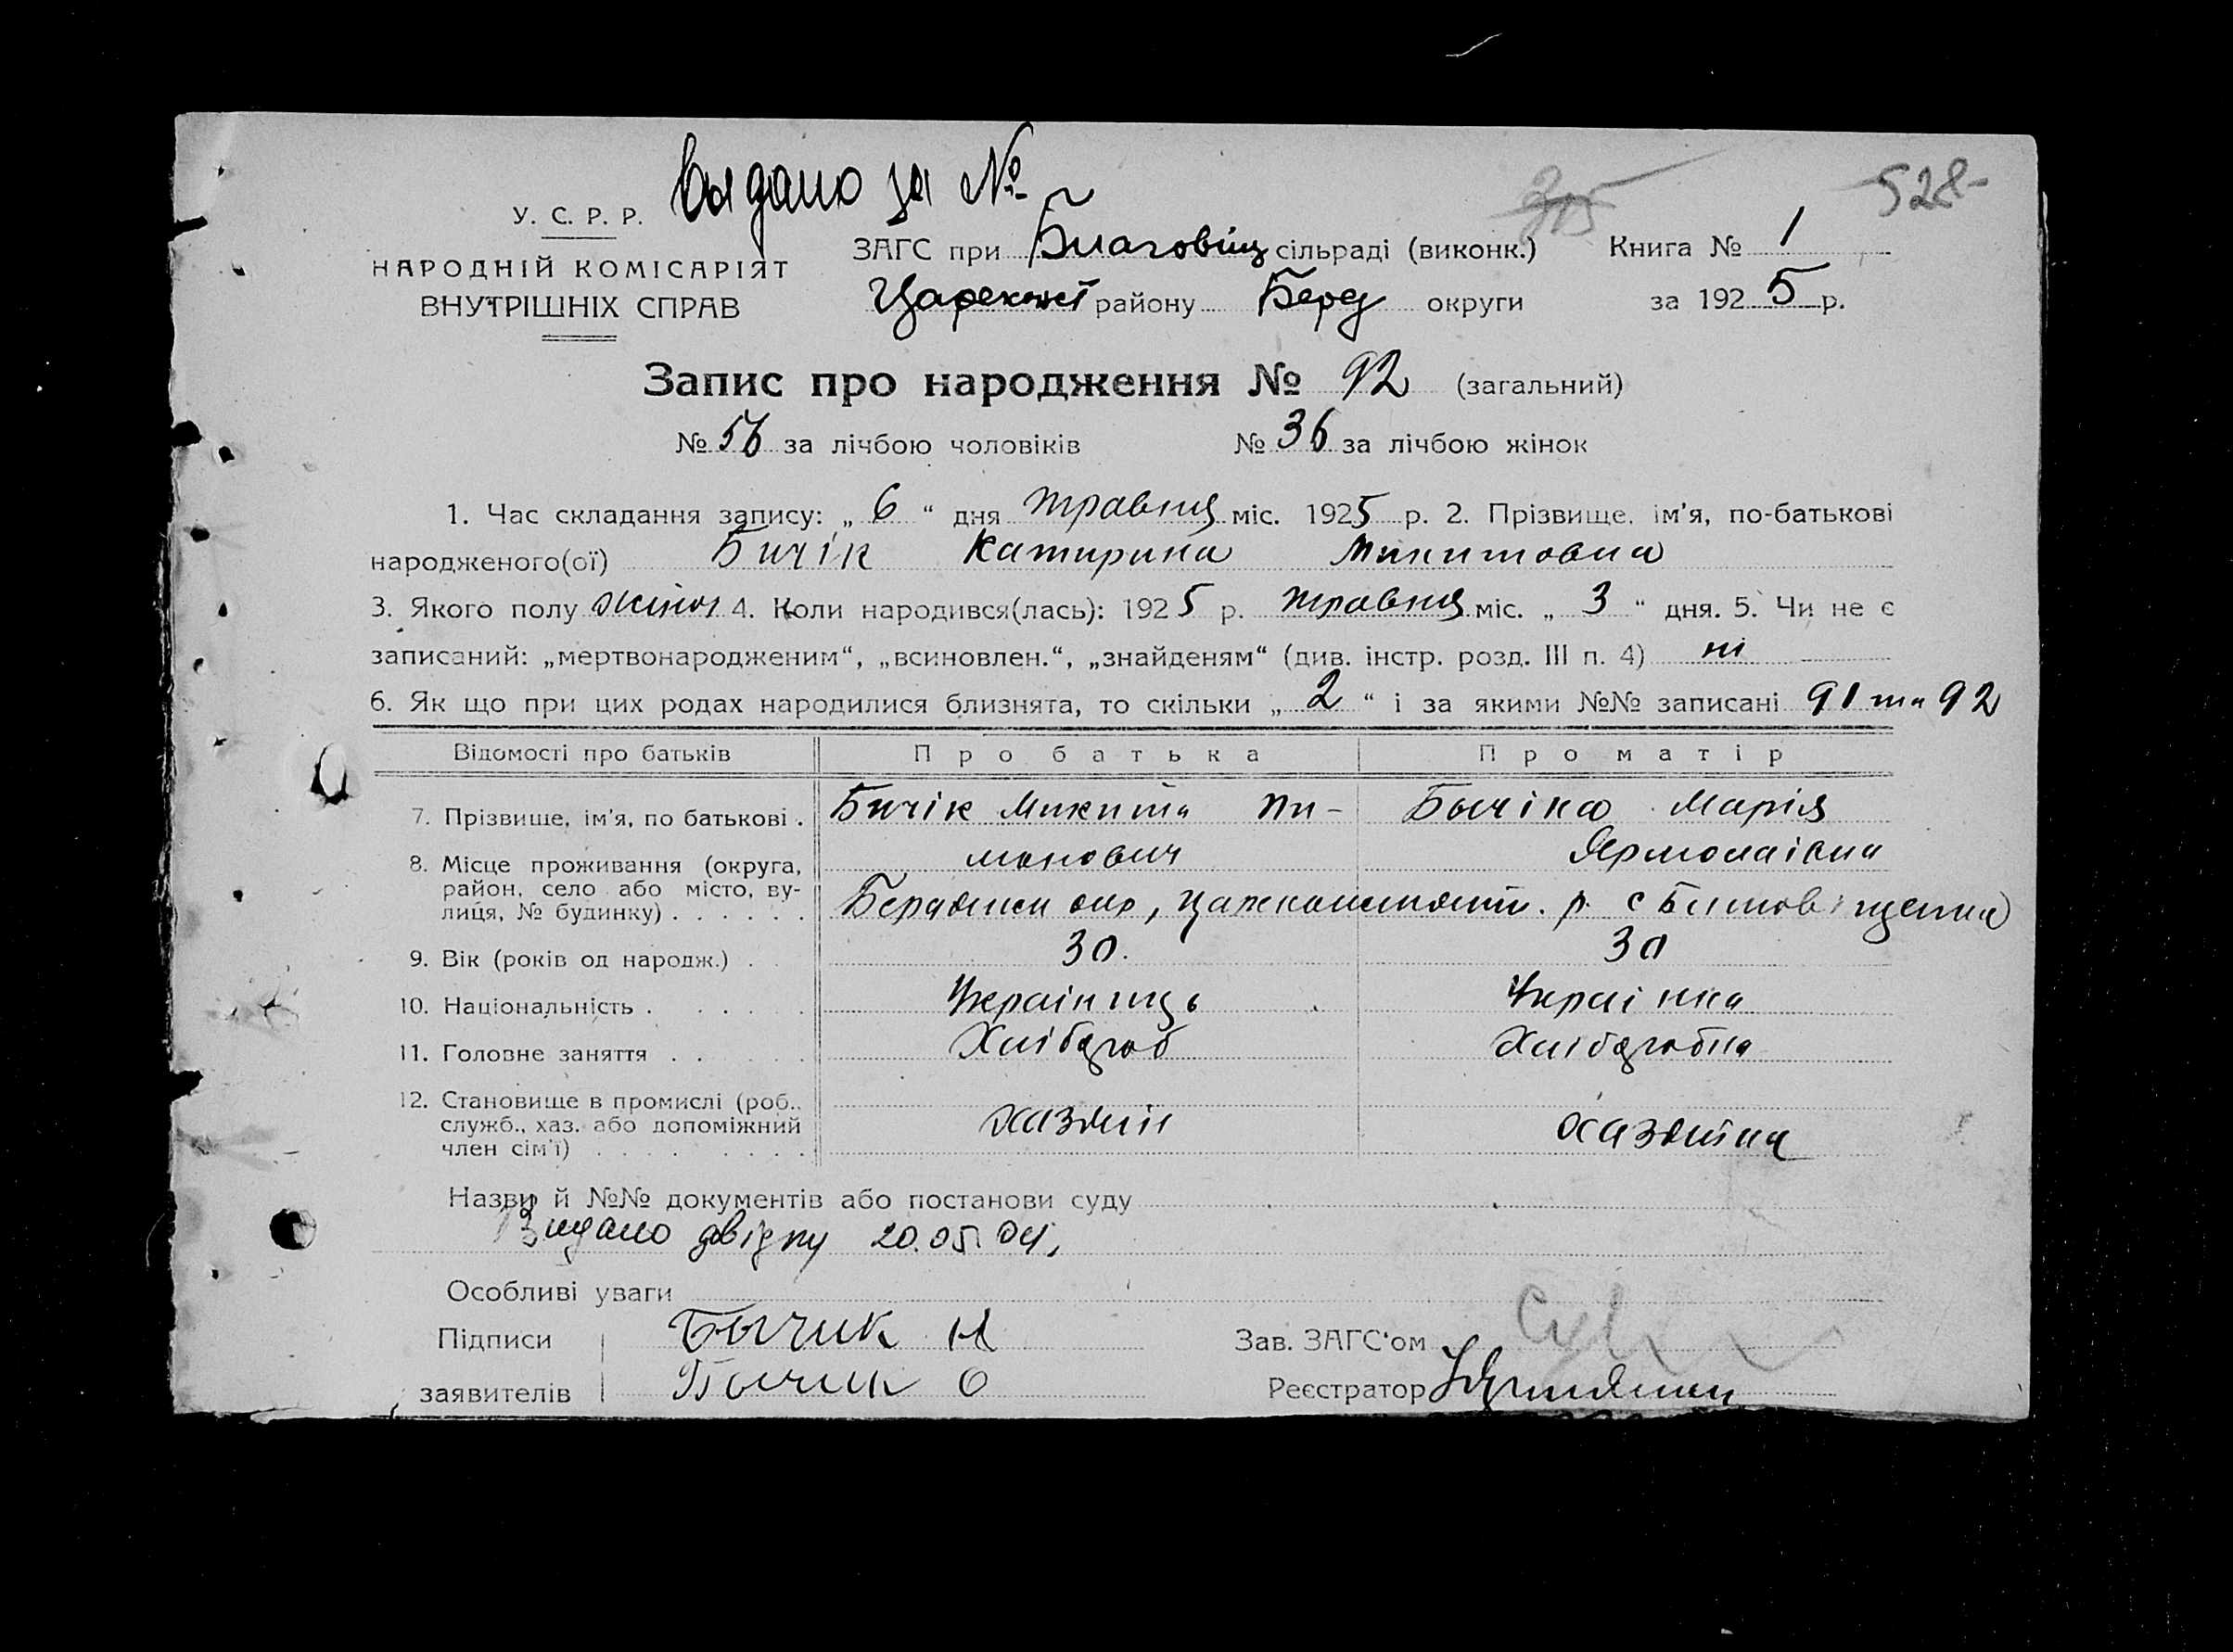 Выдано за №
528-
У. С. Р. Р.
НАРОДНІЙ КОМІСАРІЯТ
ВНУТРІШНІХ СПРАВ
ЗАГС при Благовіщ сільраді (виконк.) Книга № 1
Царекост району Берд округи за 1925 р.
Запис про народження № 92 (загальний)
№ 56 за лічбою чоловіків № 36 за лічбою жінок
1. Час складання запису: „ 6 “ дня травня міс. 1925 р. 2. Прізвище, ім'я, по-батькові
народженого(ої) Бичік Катирина Микитовна
3. Якого полу жіноч 4. Коли народився(лась): 1925 р. травня міс. „ 3 “ дня. 5. Чи не є
записаний: „мертвонародженим“, „всиновлен.“, „знайденям“ (див. інстр. розд. III п. 4) ні
6. Як що при цих родах народилися близнята, то скільки „ 2 “ і за якими №№ записані 91 та 92
Відомості про батьків Про батька Про матір
7. Прізвище, ім'я, по батькові . Бичік Микита Пи- Бычіка Марія
монович Ярмолаівна
8. Місце проживання (округа,
район, село або місто, ву-
лиця, № будинку) . . . . . . окр, р. с
9. Вік (років од народж.) . 30. 30
10. Національність . . . . . . Україниць Українка
11. Головне заняття . . . . Хлібороб Хліборобка
12. Становище в промислі (роб.,
служб., хаз. або допоміжний
член сім'ї) . . . . . . . . . хазяїн хазяйка
Назви й №№ документів або постанови суду
Видано довідку 20.05.04,
Особливі уваги
Підписи Бычик Н Зав. ЗАГС'ом
заявителів Бычик О Реєстратор